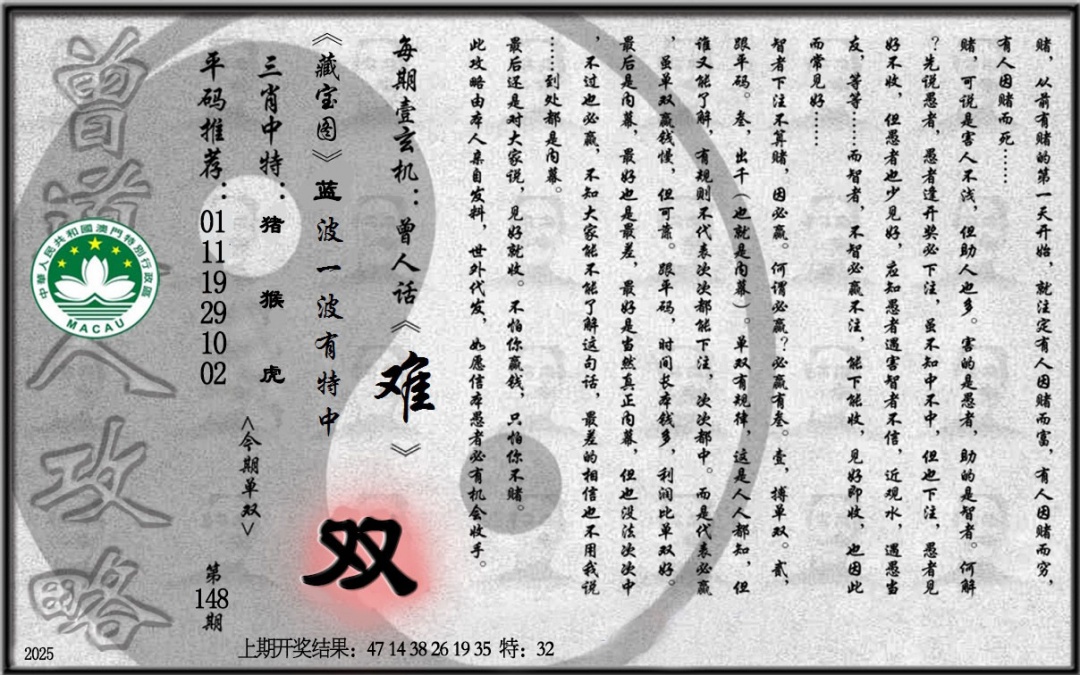 赌，从前有赌的第一天开始，就注定有人因赌而富，有人因赌而穷，
有人因赌而死……
赌，可说是害人不浅，但助人也多。害的是愚者，助的是智者。何解
？先说愚者，愚者逢开奖必下注，虽不知中不中，但也下注，愚者见
好不收，但愚者也少见好，应知愚者遇害智者不信，近观水，遇愚当
友，等等……而智者，不智必赢不注，能下能收，见好即收，也因此
而常见好……
智者下注不算赌，因必赢。何谓必赢？必赢有叁。壹，搏单双。贰，
跟平码。叁，出千（也就是内幕）。单双有规律，这是人人都知，但
谁又能了解，有规则不代表次次都能下注，次次都中。而是代表必赢
，虽单双赢钱慢，但可靠。跟平码，时间长本钱多，利润比单双好。
最后是内幕，最好也是最差，最好是当然真正内幕，但也没法次次中
，不过也必赢，不知大家能不能了解这句话，最差的相信也不用我说
……到处都是内幕。
最后还是对大家说，见好就收。不怕你赢钱，只怕你不赌。
此攻略由本人亲自发料，世外代发，如愿信本愚者必有机会收手。
每期壹玄机：曾人话《难》
《藏宝图》蓝波一波有特中
双
三肖中特：猪 猴 虎
<今期单双>
平码推荐：01 11 19 29 10 02
第148期
曾道人攻略
中華人民共和國澳門特別行政區
MACAU
2025
上期开奖结果：47 14 38 26 19 35 特：32